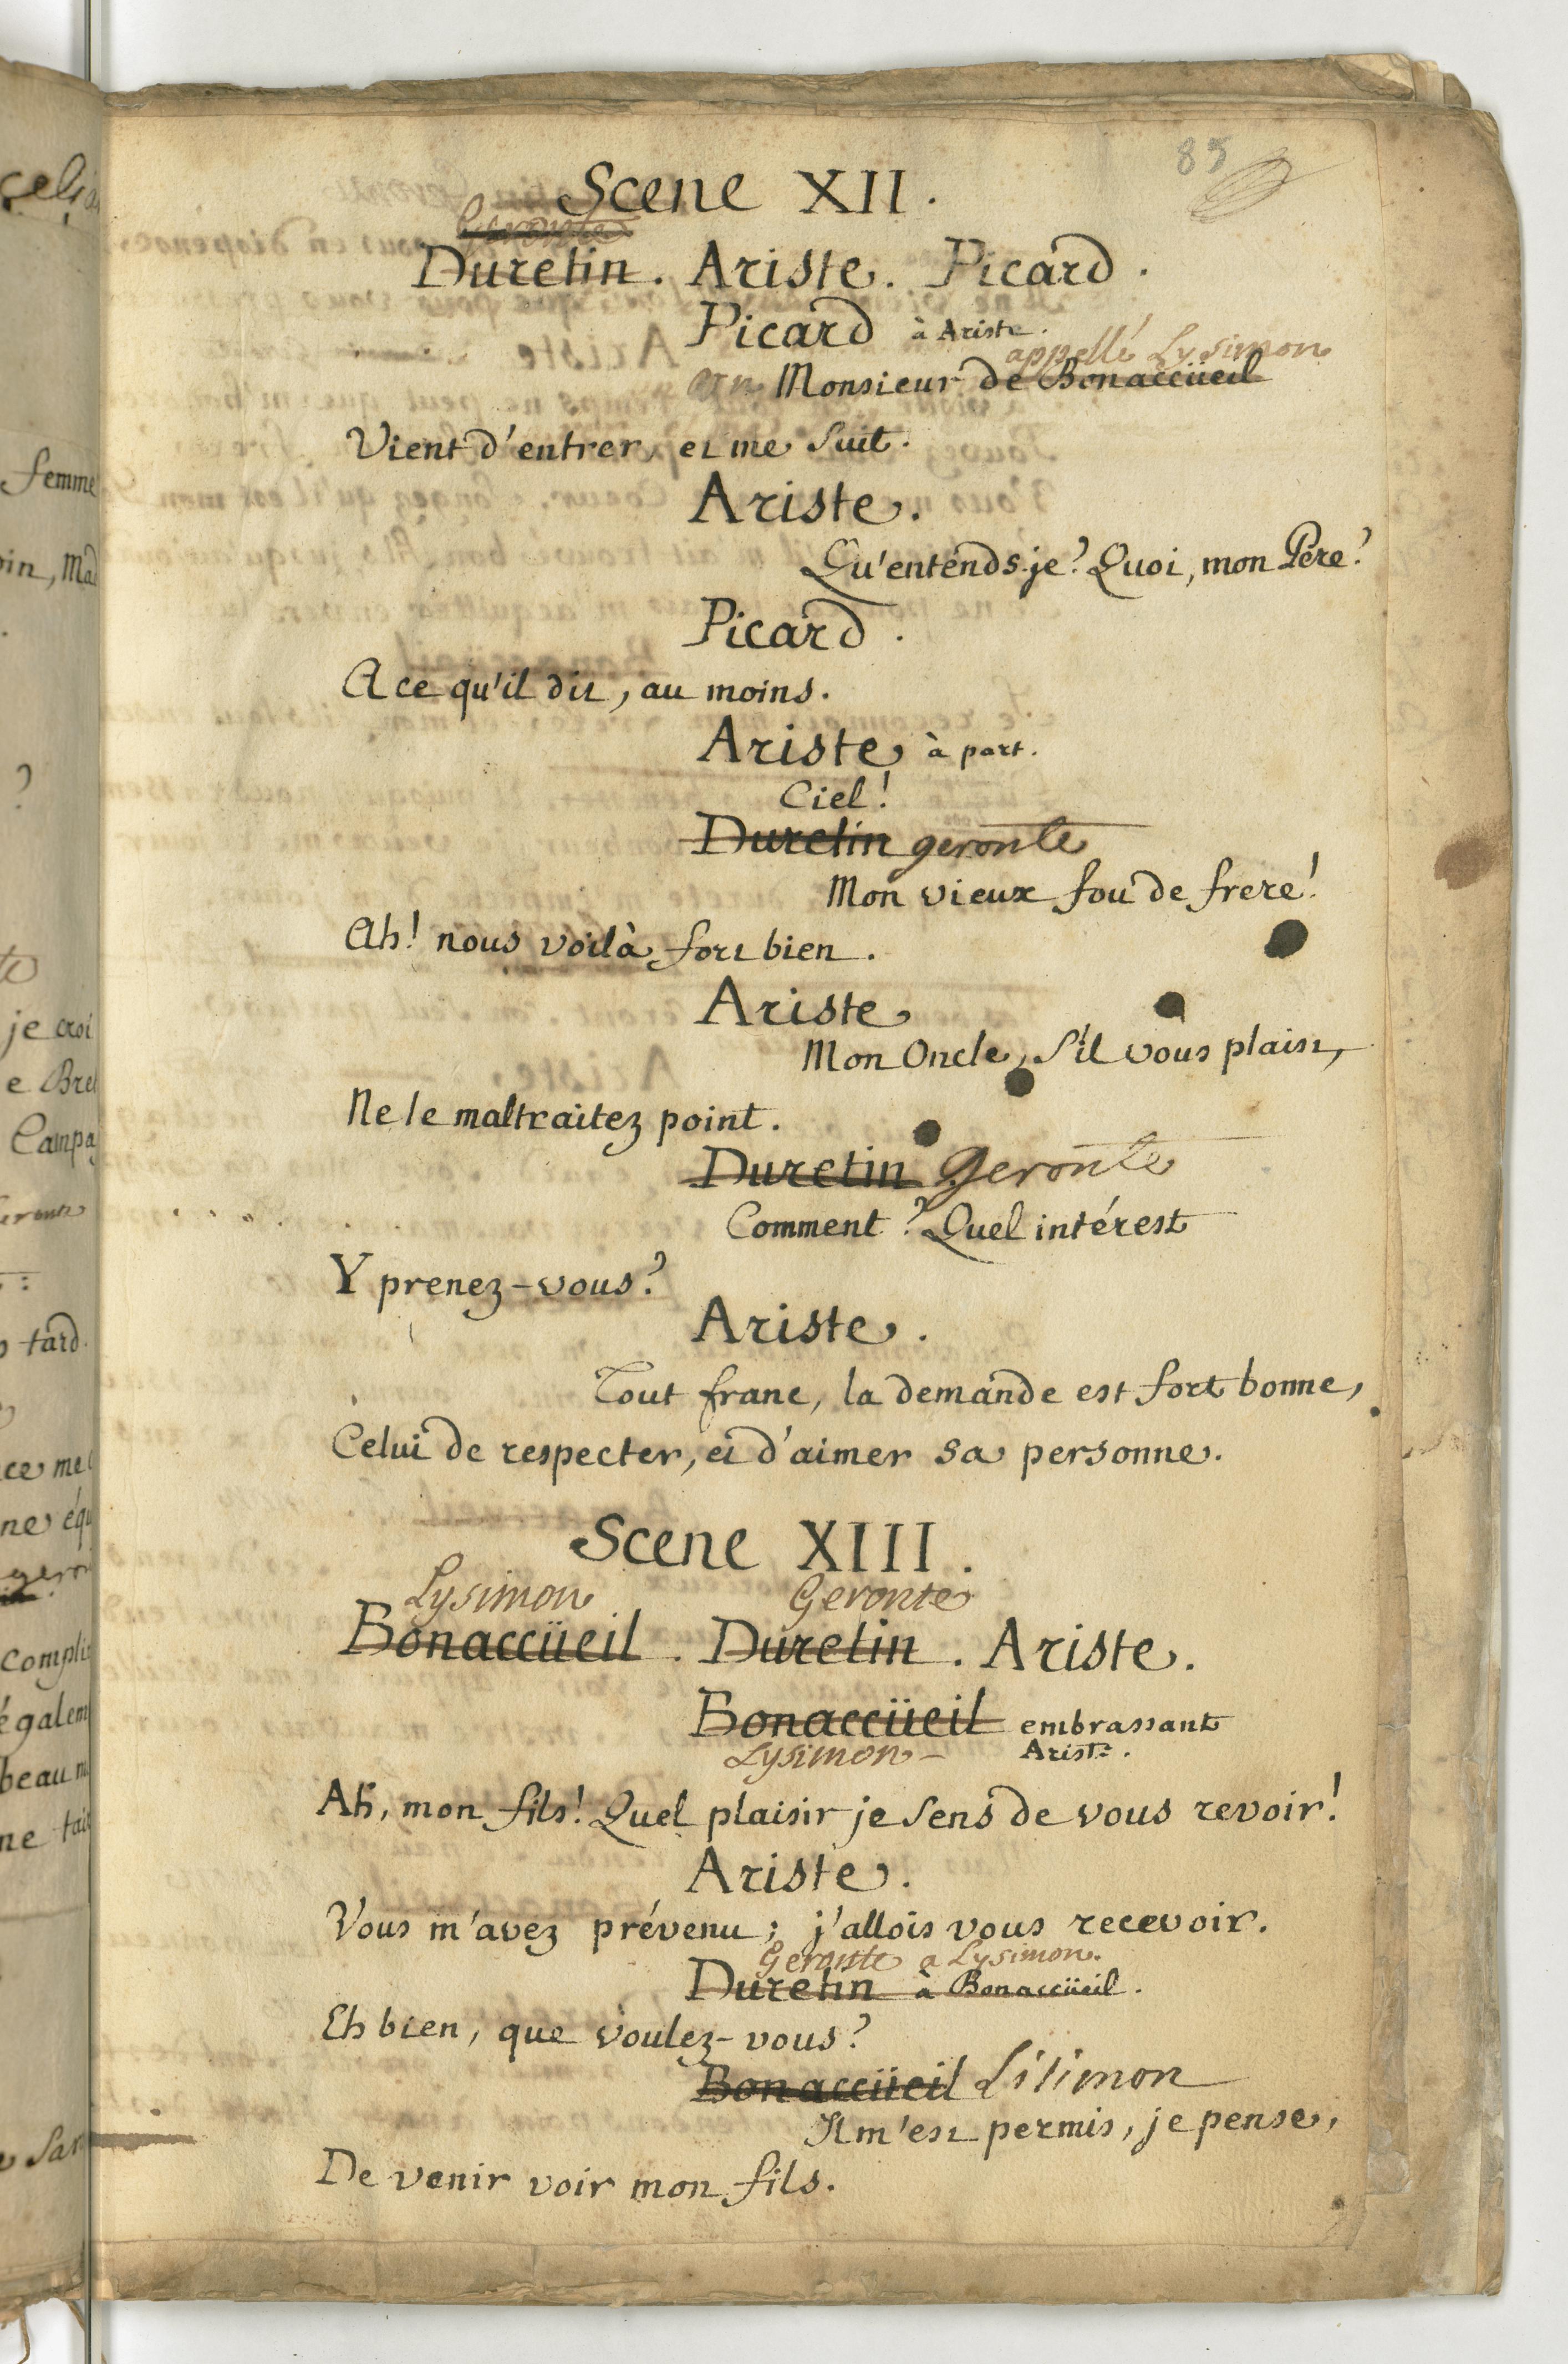 85
Scene XII.
Geronte
Duretin. Ariste. Picard.
Picard à Ariste.
appellé Lysimon
un Monsieur de Bonaccüeil
Vient d'entrer, et me suit.
Ariste.
Qu'entends-je? Quoi, mon Pere?
Picard.
A ce qu'il dit, au moins.
Ariste à part.
Ciel!
Duretin geronte
Mon vieux fou de frere!
Ah! nous voilà fort bien.
Ariste
Mon Oncle, s'il vous plaist,
Ne le maltraitez point.
Duretin Geronte
Comment? Quel intérest
Y prenez-vous?
Ariste.
Tout franc, la demande est fort bonne,
Celui de respecter, et d'aimer sa personne.
Scene XIII.
Lysimon Geronte
Bonaccüeil. Duretin. Ariste.
Bonaccüeil embrassant
Lysimon Ariste.
Ah, mon fils! Quel plaisir je sens de vous revoir!
Ariste.
Vous m'avez prévenu; j'allois vous recevoir.
Geronte a Lysimon.
Duretin à Bonaccüeil.
Eh bien, que voulez-vous?
Bonaccüeil Lisimon
Il m'est permis, je pense,
De venir voir mon fils.